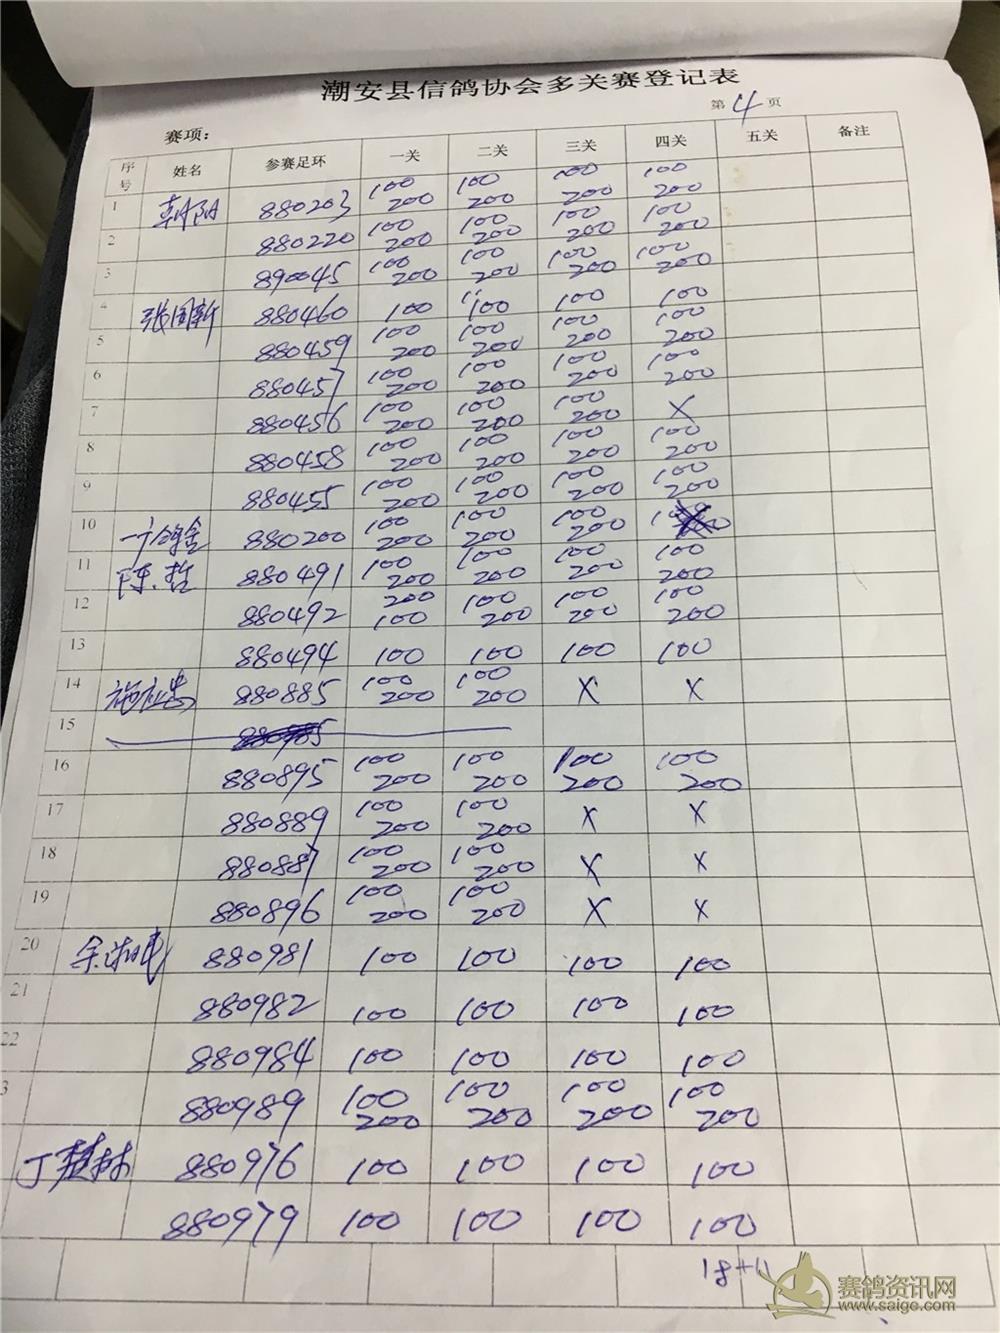 潮安县信鸽协会多关赛登记表
第4页
赛项：
序号 姓名 参赛足环 一关 二关 三关 四关 五关 备注
1 朝阳 880203 100 200 100 200 100 200 100 200
2 880220 100 200 100 200 100 200 100 200
3 890045 100 200 100 200 100 200 100 200
4 张国新 880460 100 100 100 100
5 880459 100 200 100 200 100 200 100 200
6 880457 100 200 100 200 100 200 100 200
7 880456 100 200 100 200 100 200 X
8 880458 100 200 100 200 100 200 100 200
9 880455 100 200 100 200 100 200 100 200
10 鸽舍 880200 100 200 100 200 100 200
11 陈哲 880491 100 200 100 200 100 200 100 200
12 880492 200 100 100 200 100 200 100 200
13 880494 100 100 100 100
14 施应忠 880885 100 200 100 200 X X
15
16 880895 100 200 100 200 100 200 100 200
17 880889 100 200 100 200 X X
18 880887 100 200 100 200 X X
19 880896 100 200 100 200 X X
20 880981 100 100 100 100
21 880982 100 100 100 100
22 880984 100 100 100 100
3 880989 100 200 100 200 100 200 100 200
丁 林 880976 100 100 100 100
880979 100 100 100 100
18+11
赛鸽资讯网
www.saige.com